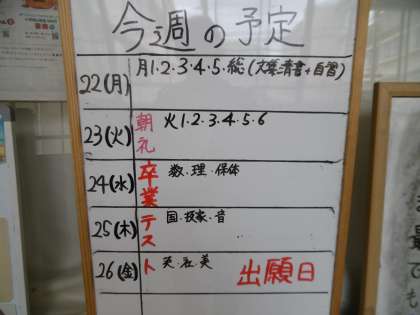 今週の予定
22(月) 月1・2・3・4・5・総(大集清書+自習)
23(火) 朝礼 火1・2・3・4・5・6
24(水) 卒業 数・理・保体
25(木) テス 国・技家・音
26(金) ト 英・社・美 出願日